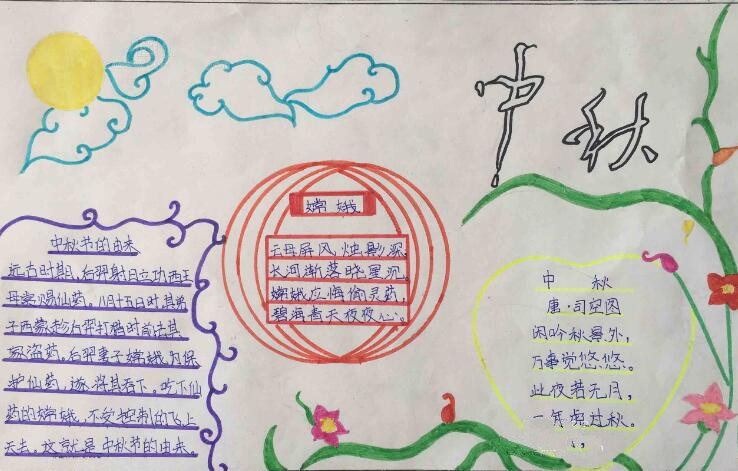 中秋
中秋节的由来
远古时期，后羿射日立功，西王
母赏赐仙药。八月十五日时其弟
子西蒙趁后羿打猎时前往其
家盗药。后羿妻子嫦娥为保
护仙药，遂将其吞下。吃下仙
药的嫦娥，不受控制的飞上
天去。这就是中秋节的由来。
嫦娥
云母屏风烛影深，
长河渐落晓星沉。
嫦娥应悔偷灵药，
碧海青天夜夜心。
中 秋
唐·司空图
闲吟秋景外，
万事觉悠悠。
此夜若无月，
一年虚过秋。